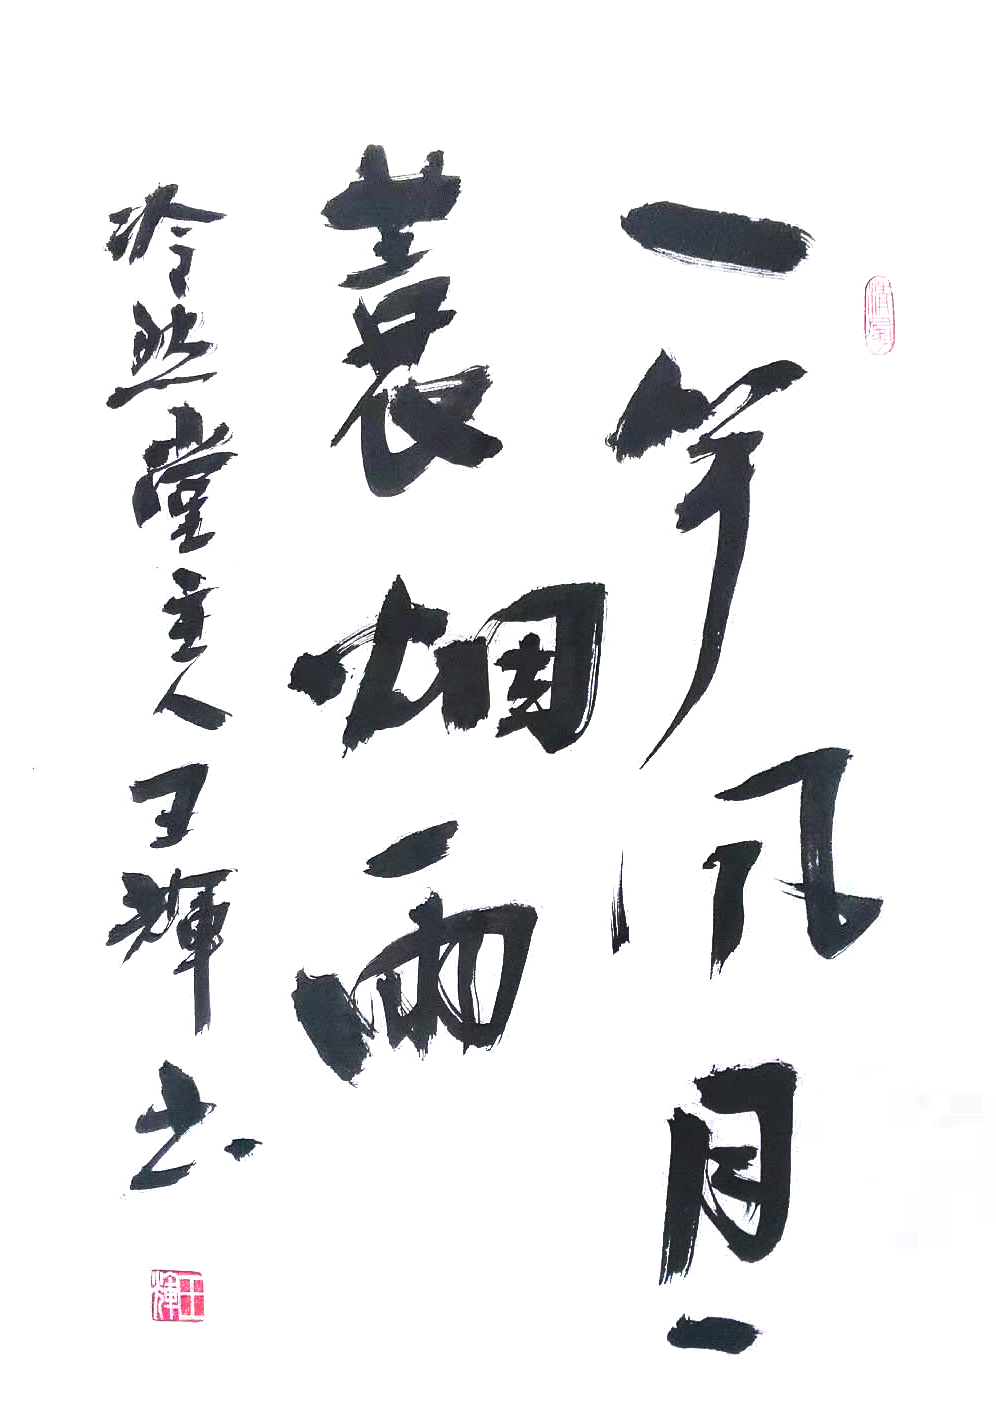 一竿风月一
蓑烟雨
冷然堂主人王輝书
王輝